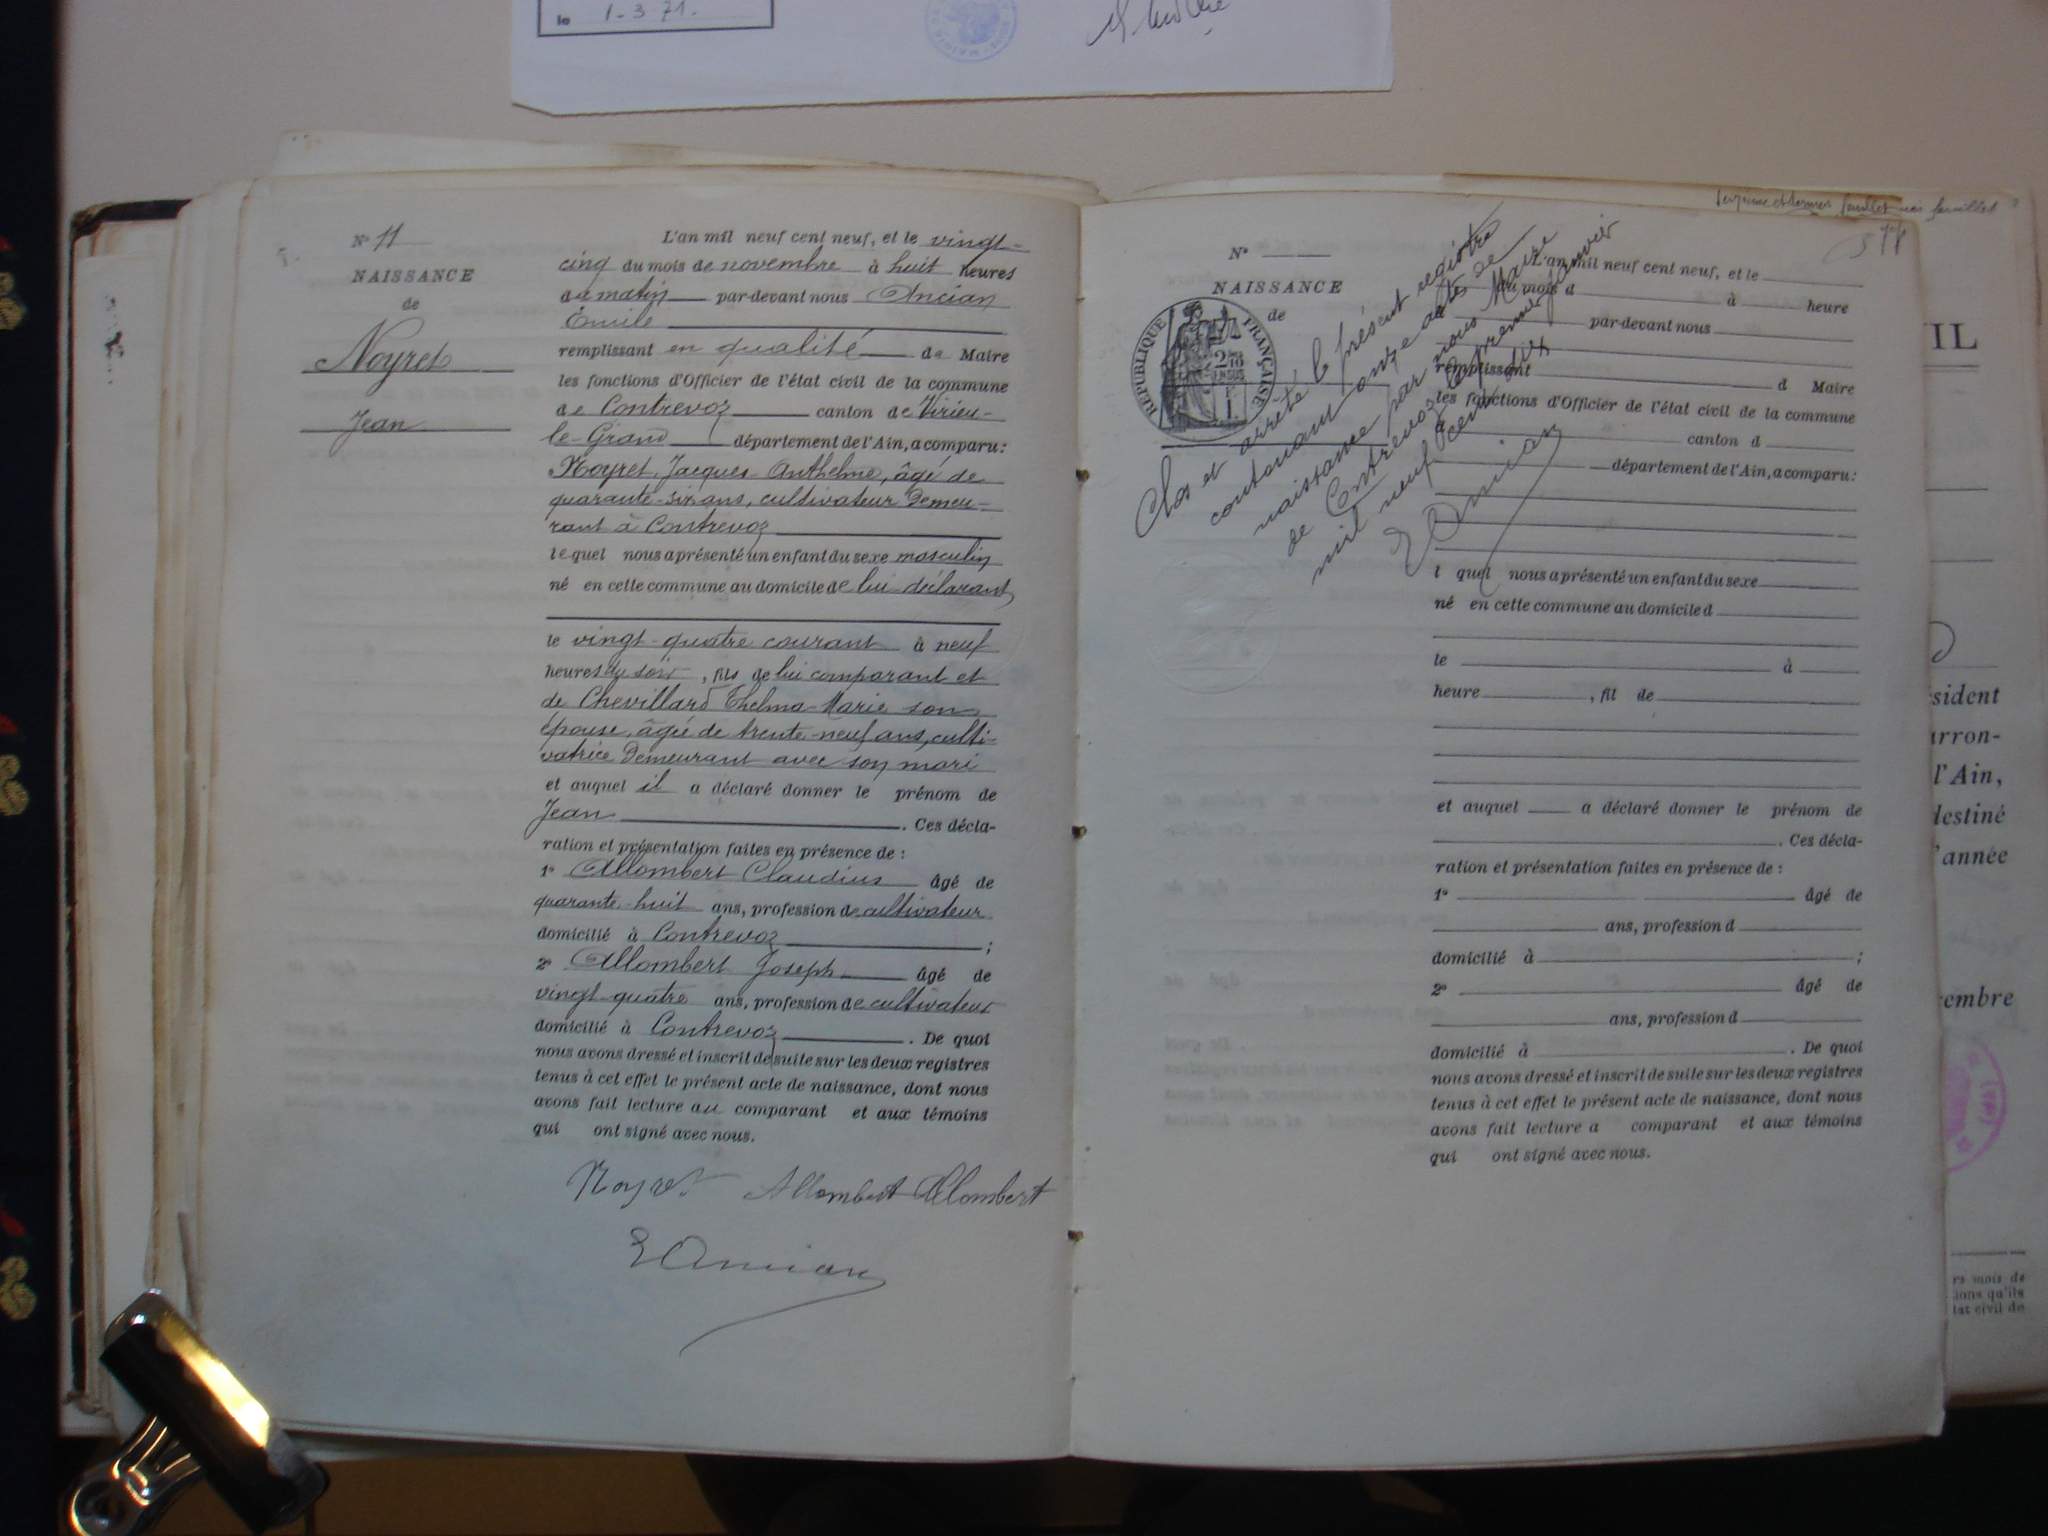 le 1-3 71.
N° 11
NAISSANCE
de
Noyret
Jean
L'an mil neuf cent neuf, et le vingt-
cinq du mois de novembre à huit heures
du matin par-devant nous Ancian
Emile
remplissant en qualité de Maire
les fonctions d'Officier de l'état civil de la commune
de Contrevoz canton de Virieu-
le-Grand département de l'Ain, a comparu:
Noyret, Jacques Anthelme, âgé de
quarante-six ans, cultivateur demeu-
rant à Contrevoz
lequel nous a présenté un enfant du sexe masculin
né en cette commune au domicile de lui déclarant
le vingt-quatre courant à neuf
heures du soir, fils de lui comparant et
de Chevillard Thelma-Marie son
épouse, âgée de trente-neuf ans, culti-
vatrice demeurant avec son mari
et auquel il a déclaré donner le prénom de
Jean. Ces décla-
ration et présentation faites en présence de :
1° Allombert Claudius âgé de
quarante-huit ans, profession de cultivateur
domicilié à Contrevoz ;
2° Allombert Joseph âgé de
vingt-quatre ans, profession de cultivateur
domicilié à Contrevoz. De quoi
nous avons dressé et inscrit de suite sur les deux registres
tenus à cet effet le présent acte de naissance, dont nous
avons fait lecture au comparant et aux témoins
qui ont signé avec nous.
Noyret Allombert Allombert
E Ancian
N°
NAISSANCE
de
RÉPUBLIQUE FRANÇAISE
Clos et arrêté le présent registre
contenant onze actes de
naissance par nous Maire
de Contrevoz le premier janvier
mil neuf cent dix
E Ancian
L'an mil neuf cent neuf, et le
du mois d à heure
par-devant nous
remplissant d Maire
les fonctions d'Officier de l'état civil de la commune
d canton d
département de l'Ain, a comparu:
l quel nous a présenté un enfant du sexe
né en cette commune au domicile d
le à
heure , fil de
et auquel a déclaré donner le prénom de
. Ces décla-
ration et présentation faites en présence de :
1° âgé de
ans, profession d
domicilié à ;
2° âgé de
ans, profession d
domicilié à . De quoi
nous avons dressé et inscrit de suite sur les deux registres
tenus à cet effet le présent acte de naissance, dont nous
avons fait lecture a comparant et aux témoins
qui ont signé avec nous.
feuillet
VIL
sident
arron-
l'Ain,
destiné
l'année
cembre
rs mois de
ions qu'ils
tat civil de